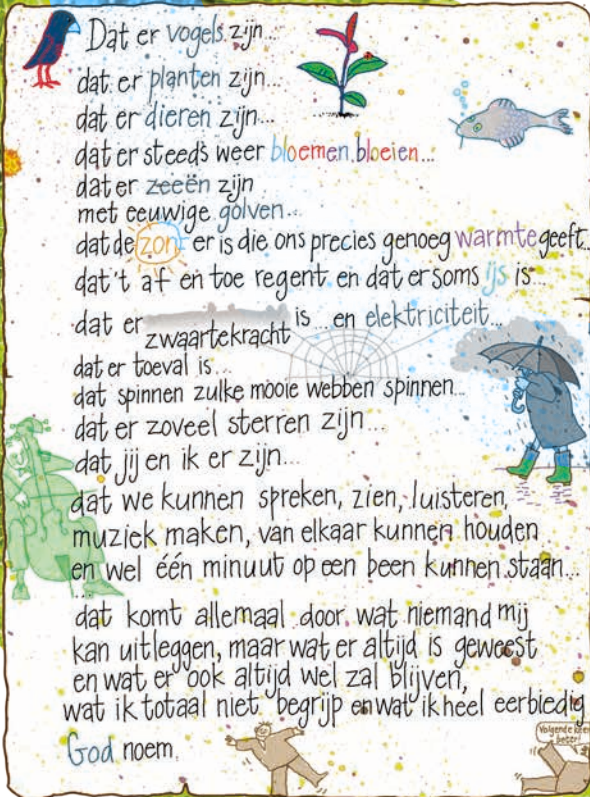 Dat er vogels zijn...
dat er planten zijn...
dat er dieren zijn...
dat er steeds weer bloemen bloeien...
dat er zeeën zijn
met eeuwige golven...
dat de zon er is die ons precies genoeg warmte geeft...
dat 't af en toe regent en dat er soms ijs is...
dat er zwaartekracht is... en elektriciteit...
dat er toeval is...
dat spinnen zulke mooie webben spinnen...
dat er zoveel sterren zijn...
dat jij en ik er zijn...
dat we kunnen spreken, zien, luisteren,
muziek maken, van elkaar kunnen houden
en wel één minuut op een been kunnen staan...
...
dat komt allemaal door wat niemand mij
kan uitleggen, maar wat er altijd is geweest
en wat er ook altijd wel zal blijven,
wat ik totaal niet begrijp en wat ik heel eerbiedig
God noem.
Volgende keer
beter!